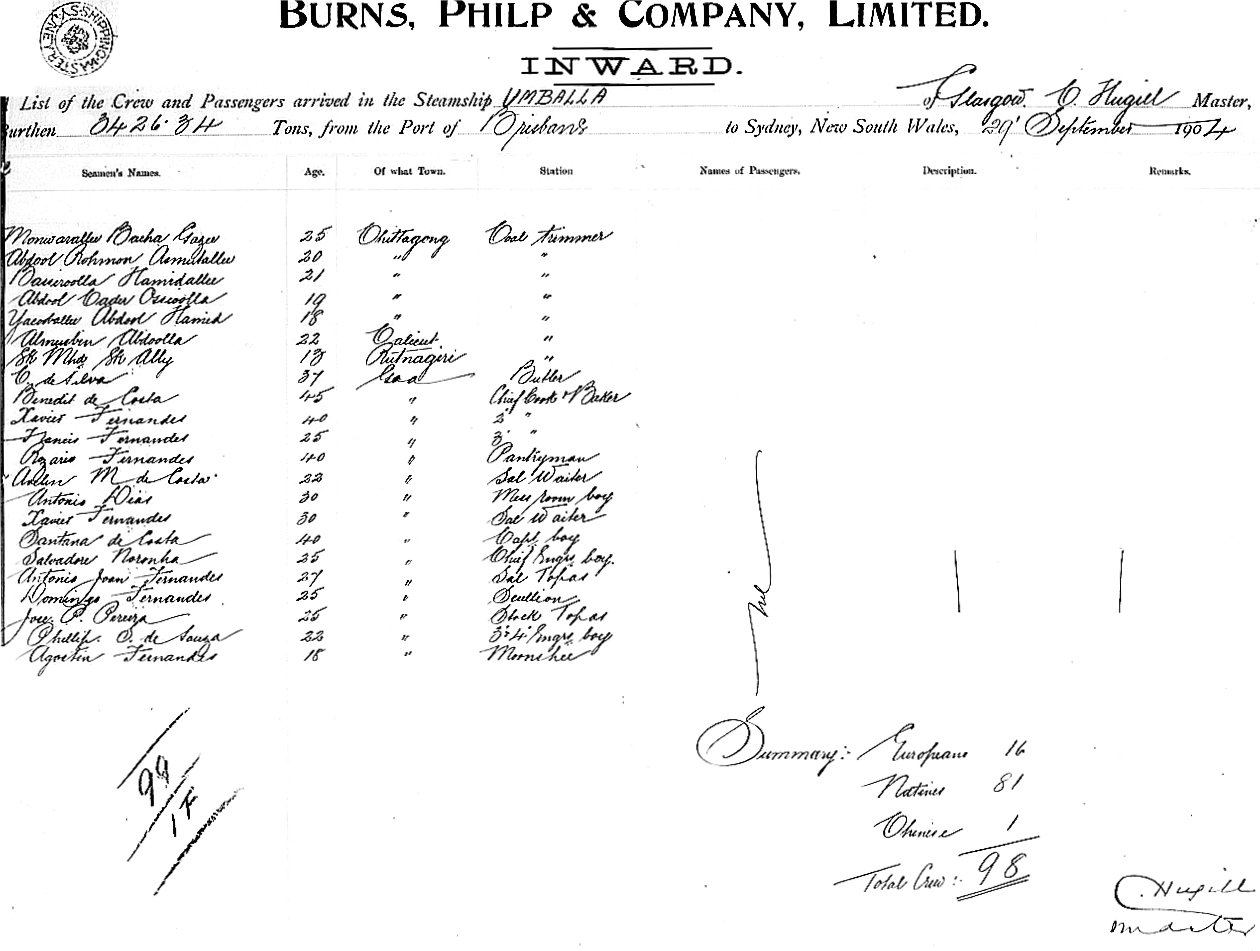 BURNS, PHILP & COMPANY, LIMITED.
INWARD.
List of the Crew and Passengers arrived in the Steamship UMBALLA of Glasgow. C. Hugill Master,
Burthen 3426.34 Tons, from the Port of Brisbane to Sydney, New South Wales, 29' September 1904
Seamen's Names. Age. Of what Town. Station Names of Passengers. Description. Remarks.
Monwarallee Bacha Gazee 25 Chittagong Coal trimmer
Abdool Rohmon Asmutallee 20 " "
Basseroolla Hamidallee 21 " "
Abdool Cader 19 " "
Yacoballee Abdool Hamid 18 " "
Abdoolla 22 Calicut "
Sk Mhd Sk Ally 13 Rutnagiri "
C. de Silva 37 Goa Butler
Benedit de Costa 45 " Chief Cook & Baker
Xavier Fernandes 40 " 2' "
Francis Fernandes 25 " 3' "
Rozario Fernandes 40 " Pantryman
M de Costa 22 " Sal Waiter
Antonio Dias 30 " Mess room boy
Xavier Fernandes 30 " Sal Waiter
Santana de Costa 40 " Capt. boy
Salvadore Noronha 25 " Chief Engrs boy.
Antonio Joan Fernandes 27 " Sal Topas
Domingo Fernandes 25 " Scullion
Jose P. Pereira 25 " Topas
Phillip C. de Souza 22 " 3' 4' Engrs boy
Agostin Fernandes 18 " Moonshee
Nil
Summary:- Europeans 16
Natives 81
Chinese 1
Total Crew:- 98
99
C. Hugill
Master